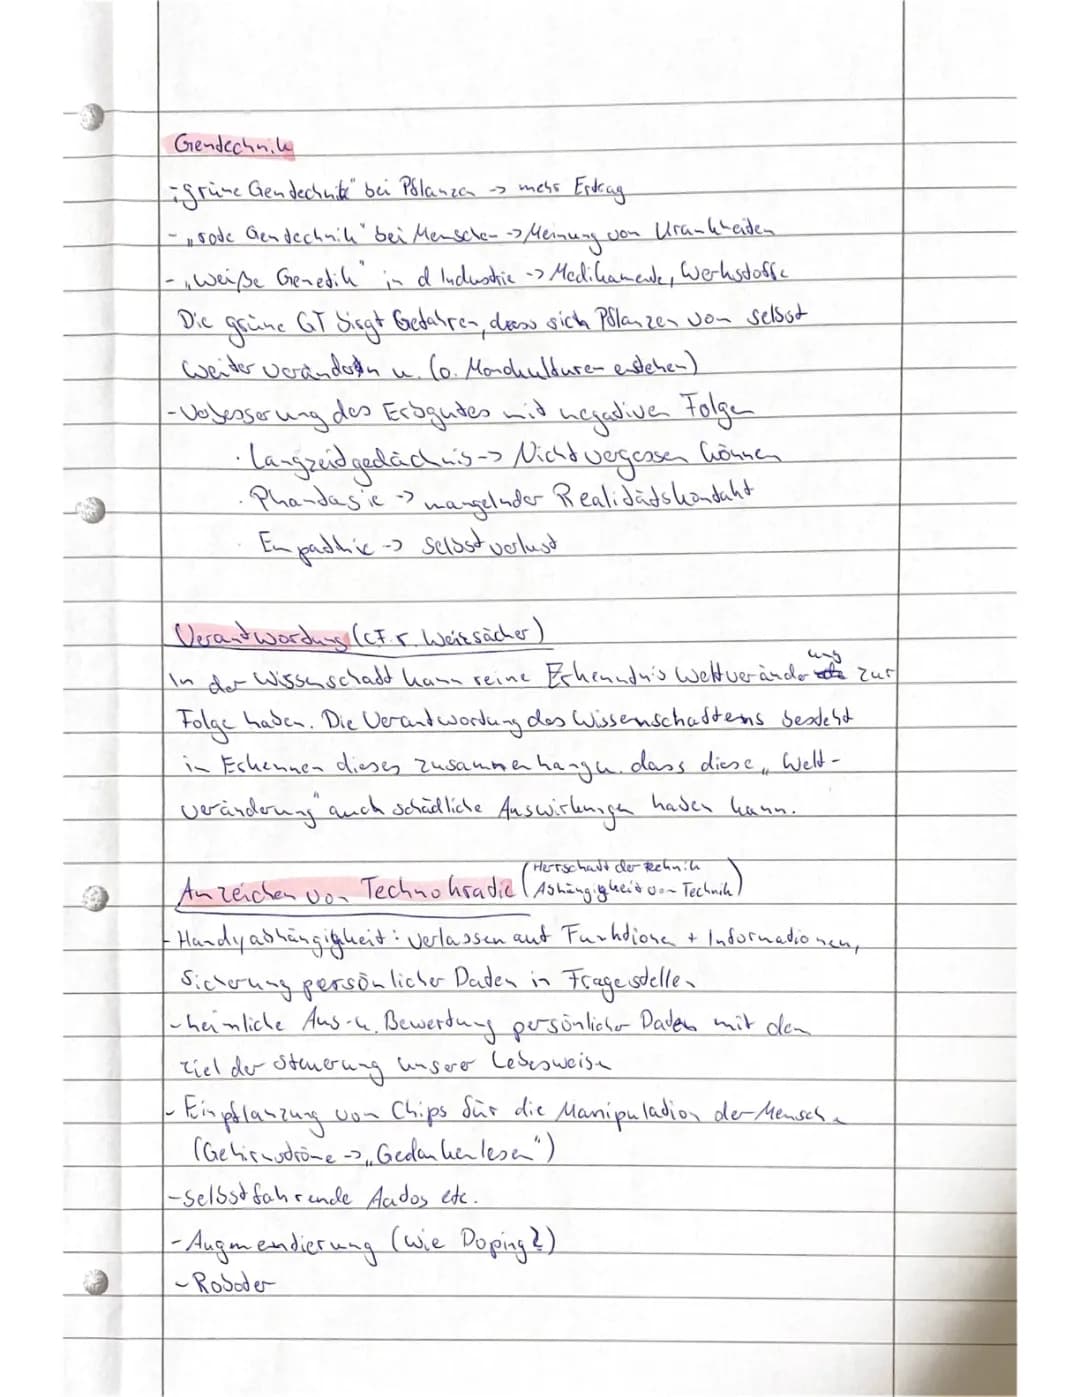 Gentechnik
- "grüne Gentechnik" bei Pflanzen -> mehr Ertrag
- "rote Gentechnik" bei Menschen -> Meinung von Krankheiten
- "weiße Genetik" in d Industrie -> Medikamente, Werkstoffe
Die grüne GT birgt Gefahren, dass sich Pflanzen von selbst
weiter verändern u. (o. Monokulturen entstehen)
- Verbesserung des Erbgutes mit negativen Folgen
· Langzeitgedächnis -> Nicht vergessen können
· Phantasie -> mangelnder Realitätskontakt
· Empathie -> Selbstverlust
Verantwortung (C.F.v. Weizsäcker)
In der Wissenschaft kann reine Erkenntnis Weltveränderung zur
Folge haben. Die Verantwortung des Wissenschaftlers besteht
in Erkennen dieses zusammenhangs u. dass diese "Welt-
veränderung" auch schädliche Auswirkungen haben kann.
Anzeichen von Technokratie (Herrschaft der Technik
Abhängigkeit von Technik)
- Handyabhängigkeit: verlassen auf Funktionen + Informationen,
Sicherung persönlicher Daten in Frage stellen
- heimliche Aus- u. Bewertung persönlicher Daten mit dem
Ziel der Steuerung unserer Lebesweise
- Einpflanzung von Chips für die Manipulation der Menschen
(Gehirnströme -> "Gedankenlesen")
- selbstfahrende Autos etc.
- Augmentierung (wie Doping?)
- Roboter